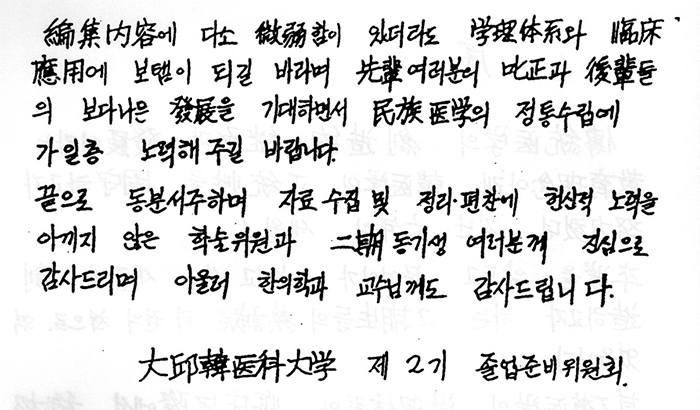 編集内容에 다소 微弱함이 있더라도 学理体系와 临床
應用에 보탬이 되길 바라며 先輩여러분의 叱正과 後輩들
의 보다나은 發展을 기대하면서 民族医学의 정통수립에
가일층 노력해주길 바랍니다.
끝으로 동분서주하며 자료수집 및 정리·편찬에 헌신적 노력을
아끼지 않은 학술위원과 二期동기생 여러분께 진심으로
감사드리며 아울러 한의학과 교수님께도 감사드립니다.
大邱韓医科大学 제2기 졸업준비위원회.